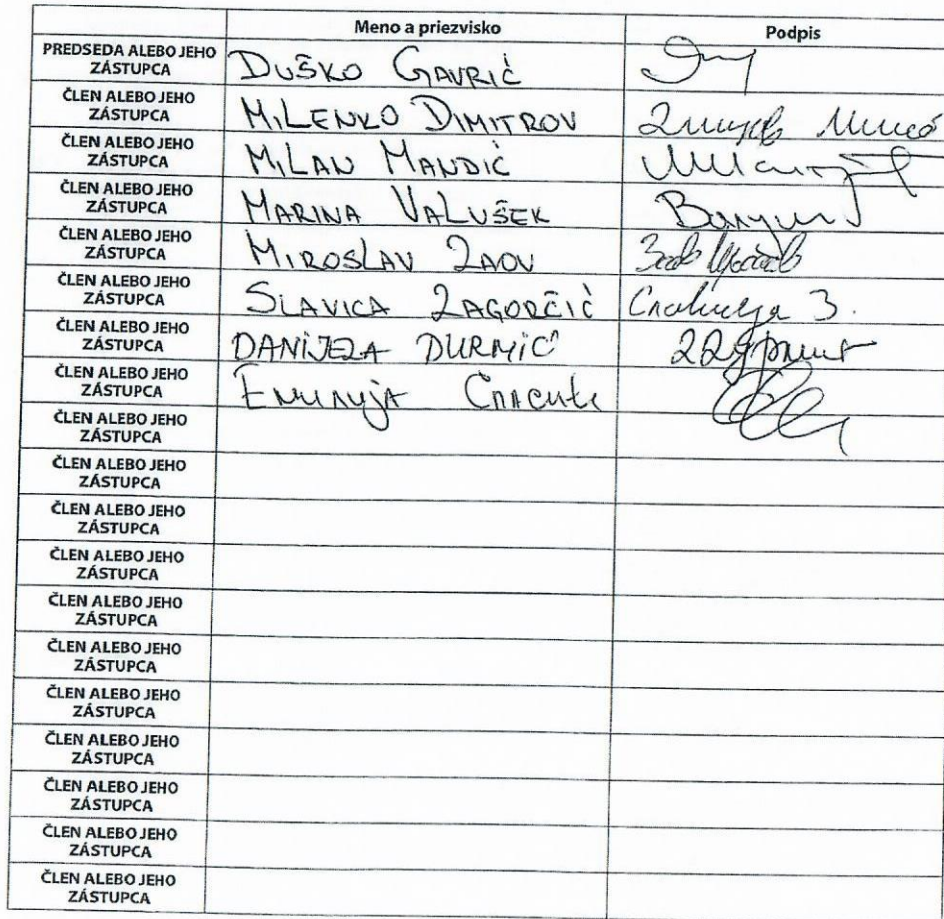 Meno a priezvisko Podpis
PREDSEDA ALEBO JEHO
ZÁSTUPCA
DUŠKO GAVRIĆ
ČLEN ALEBO JEHO
ZÁSTUPCA
MILENKO DIMITROV
ČLEN ALEBO JEHO
ZÁSTUPCA
MILAN MANDIĆ
ČLEN ALEBO JEHO
ZÁSTUPCA
MARINA VALUŠEK
ČLEN ALEBO JEHO
ZÁSTUPCA
MIROSLAV ZAOV
ČLEN ALEBO JEHO
ZÁSTUPCA
SLAVICA ZAGORČIĆ Славица З.
ČLEN ALEBO JEHO
ZÁSTUPCA
DANIJELA DURMIĆ
ČLEN ALEBO JEHO
ZÁSTUPCA
ČLEN ALEBO JEHO
ZÁSTUPCA
ČLEN ALEBO JEHO
ZÁSTUPCA
ČLEN ALEBO JEHO
ZÁSTUPCA
ČLEN ALEBO JEHO
ZÁSTUPCA
ČLEN ALEBO JEHO
ZÁSTUPCA
ČLEN ALEBO JEHO
ZÁSTUPCA
ČLEN ALEBO JEHO
ZÁSTUPCA
ČLEN ALEBO JEHO
ZÁSTUPCA
ČLEN ALEBO JEHO
ZÁSTUPCA
ČLEN ALEBO JEHO
ZÁSTUPCA
ČLEN ALEBO JEHO
ZÁSTUPCA